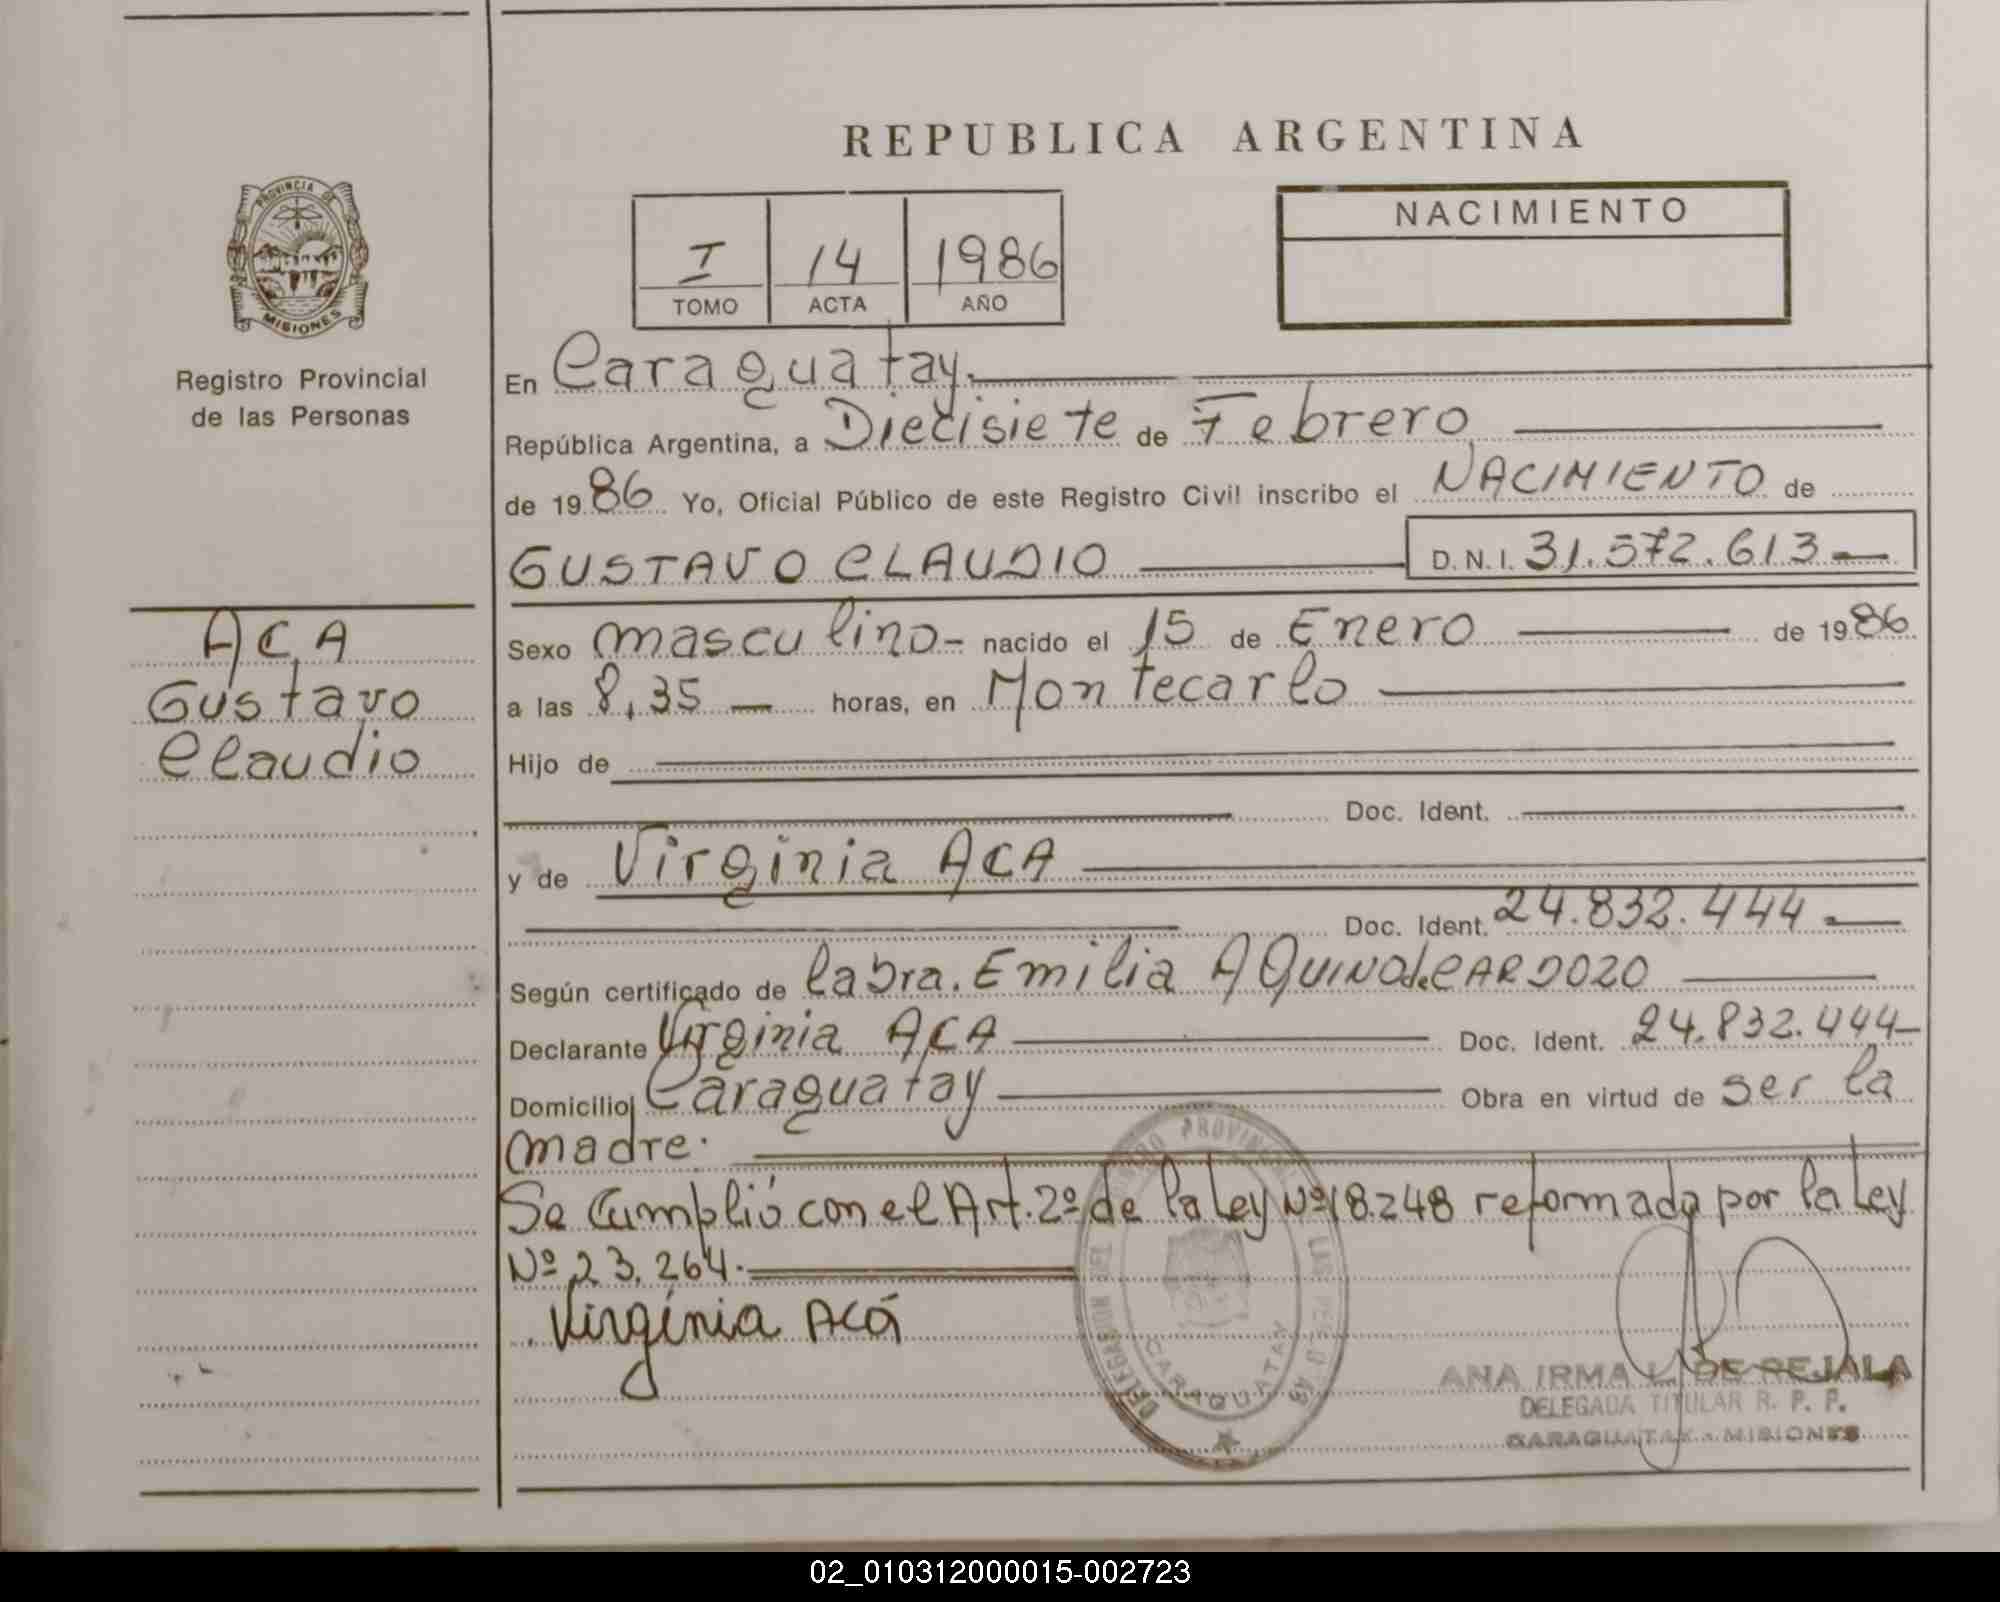 REPUBLICA ARGENTINA
PROVINCIA DE
MISIONES
Registro Provincial
de las Personas
I 14 1986
TOMO ACTA AÑO
NACIMIENTO
En Caraguatay.
República Argentina, a Diecisiete de Febrero
de 1986 Yo, Oficial Público de este Registro Civil inscribo el NACIMIENTO de
GUSTAVO CLAUDIO D.N.I. 31.572.613
ACA
Gustavo
Claudio
Sexo masculino- nacido el 15 de Enero de 1986
a las 8,35 horas, en Montecarlo
Hijo de
Doc. Ident.
y de Virginia ACA
Doc. Ident. 24.832.444
Según certificado de la Dra. Emilia AQUINO de CARDOZO
Declarante Virginia ACA Doc. Ident. 24.832.444
Domicilio Caraguatay Obra en virtud de ser la
madre.
Se Cumplió con el Art. 2º de la Ley Nº 18.248 reformada por la Ley
Nº 23.264.
Virginia Acá
CARAGUATAY
ANA IRMA L. DE REJALA
DELEGADA TITULAR R. P. P.
CARAGUATAY - MISIONES
02_010312000015-002723